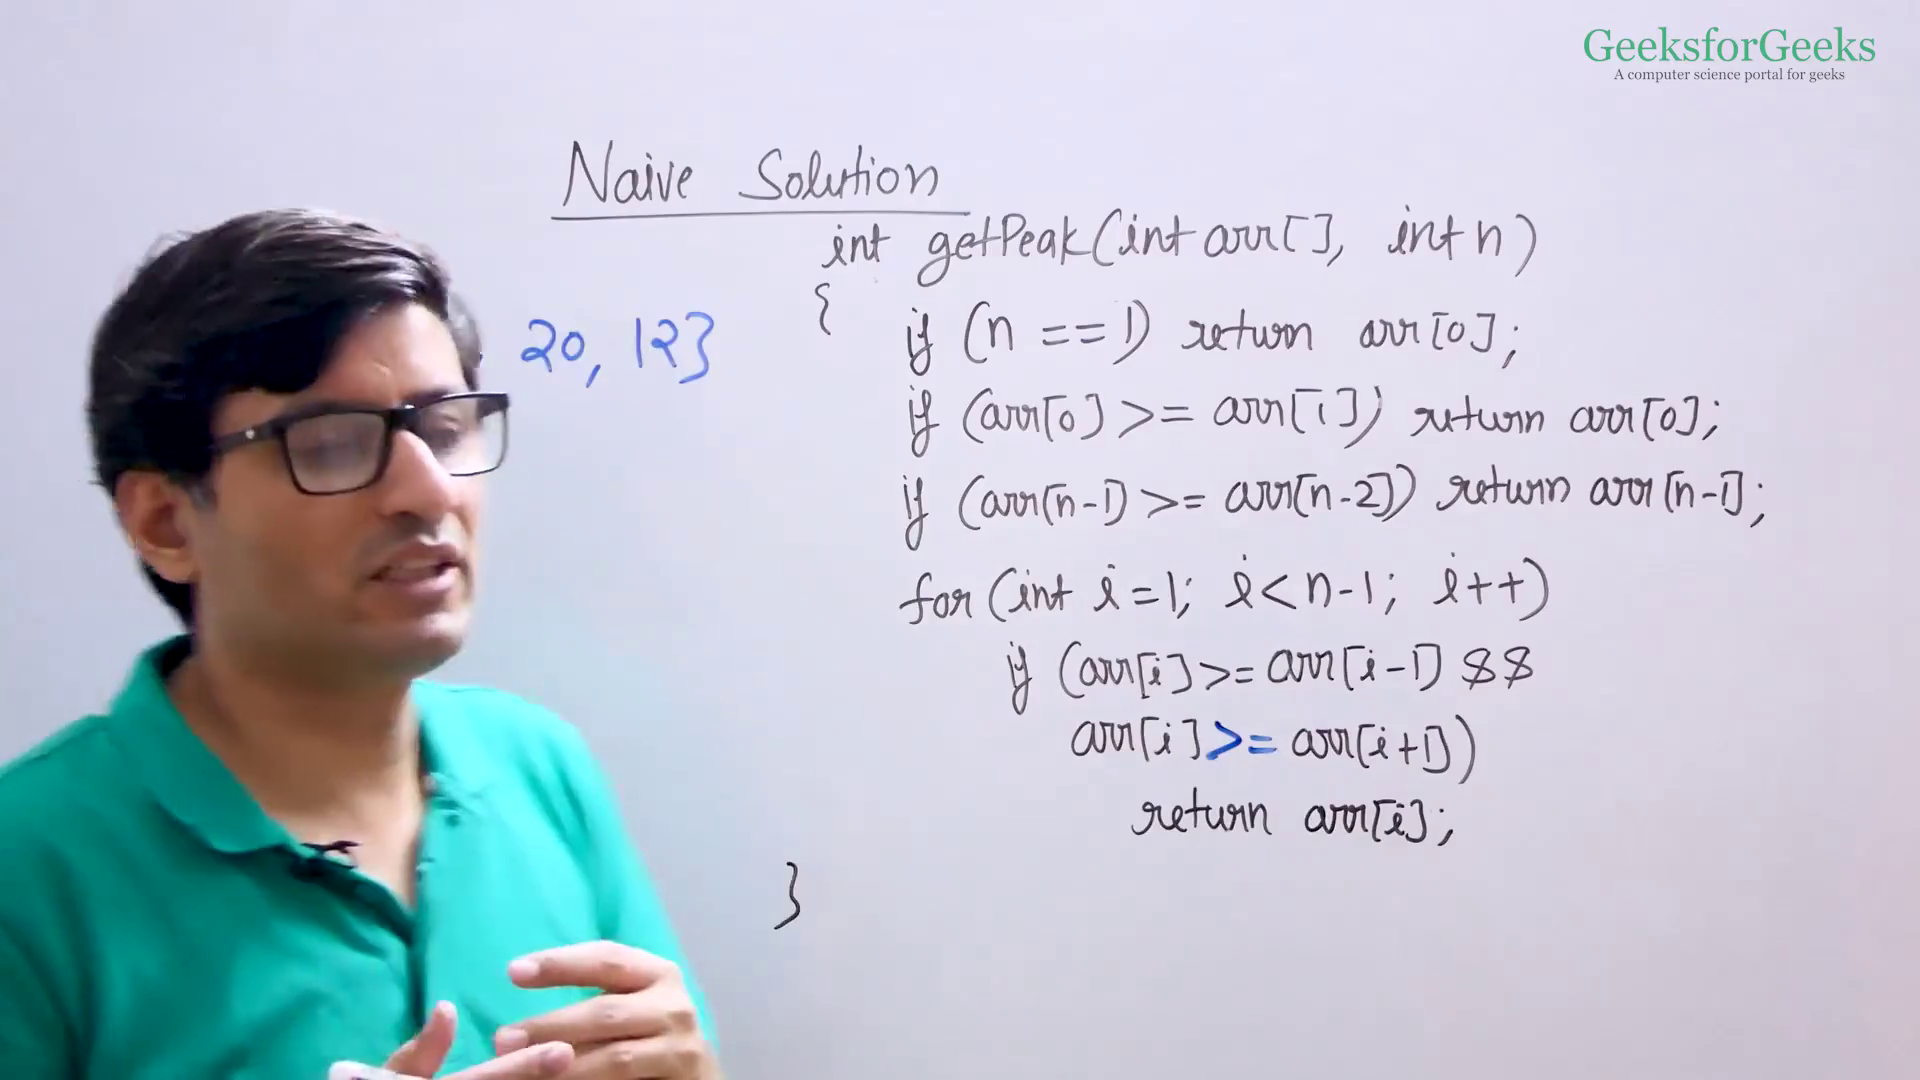 GeeksforGeeks
A computer science portal for geeks
Naive Solution
int getPeak(int arr[], int n)
{
20, 12}
if (n ==1) return arr[0];
if (arr[0] >= arr[1]) return arr[0];
if (arr[n-1] >= arr[n-2]) return arr[n-1];
for (int i=1; i<n-1; i++)
if (arr[i]>= arr[i-1] &&
arr[i]>= arr[i+1])
return arr[i];
}